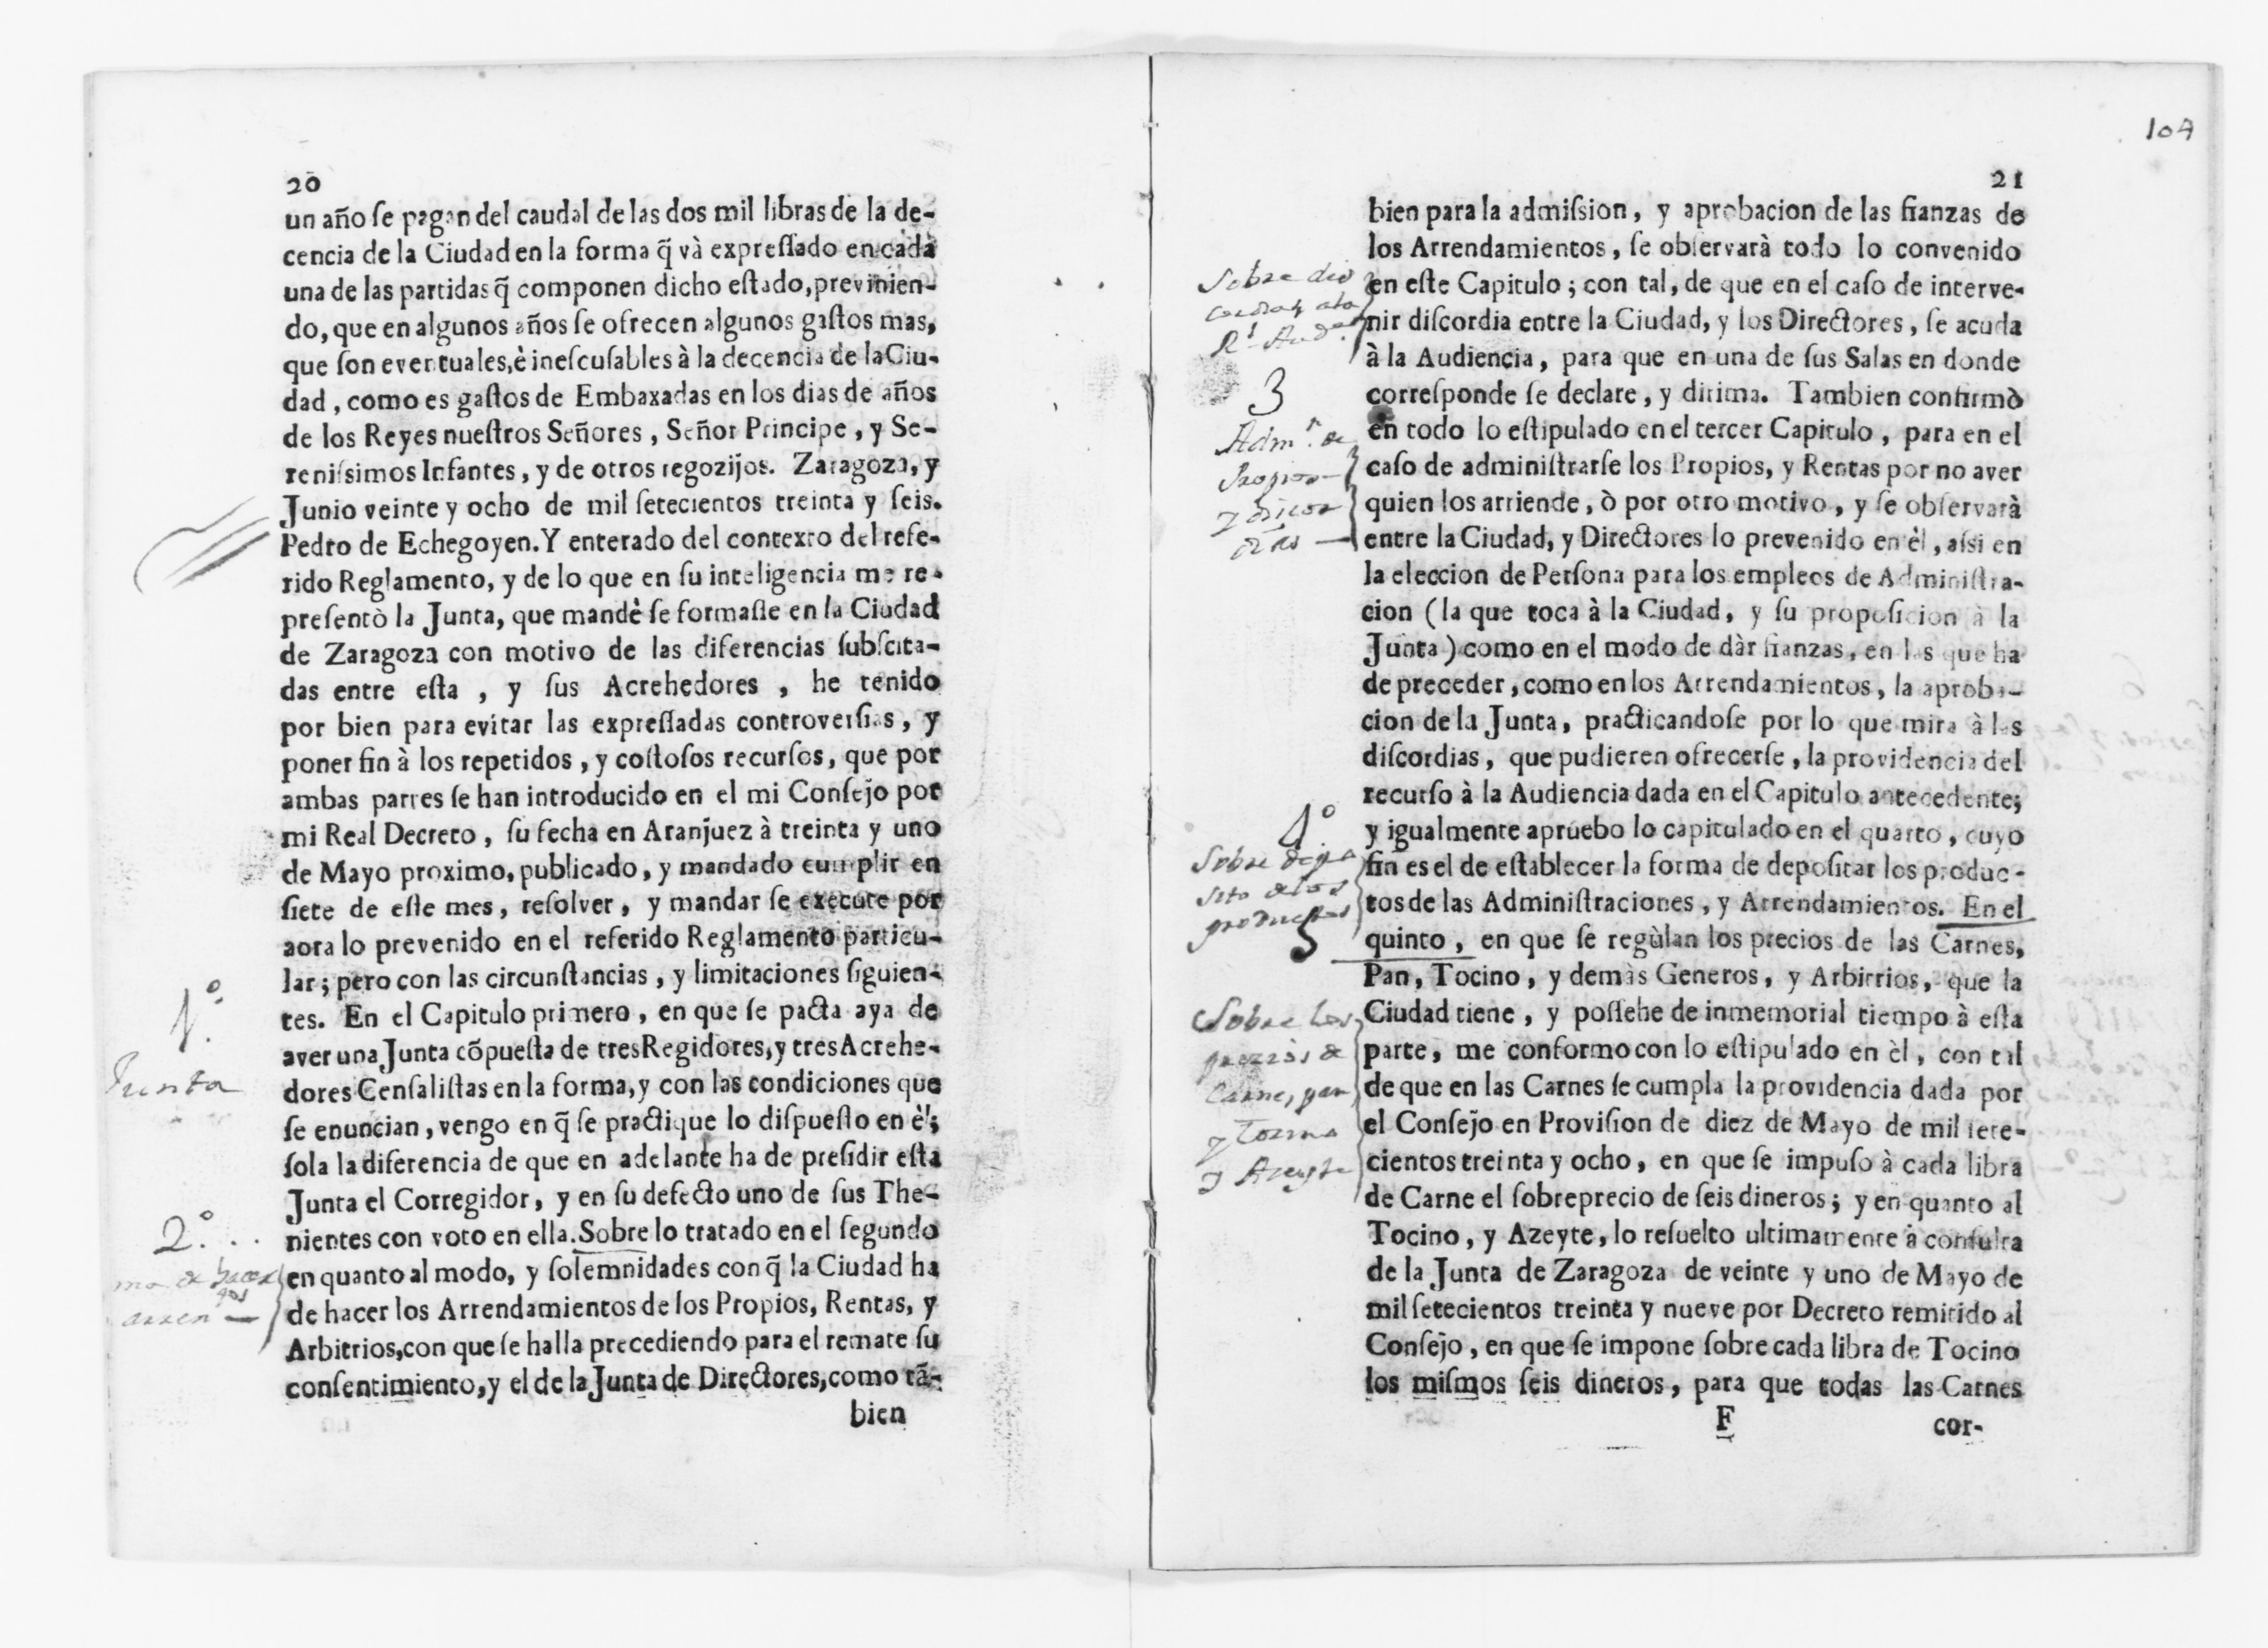 20
un año ſe pagan del caudal de las dos mil libras de la de-
cencia de la Ciudad en la forma q̃ và expreſſado en cada
una de las partidas q̃ componen dicho eſtado, previnien-
do, que en algunos años ſe ofrecen algunos gaſtos mas,
que ſon eventuales, è ineſcuſables à la decencia de la Ciu-
dad, como es gaſtos de Embaxadas en los dias de años
de los Reyes nueſtros Señores, Señor Principe, y Se-
reniſsimos Infantes, y de otros regozijos. Zaragoza, y
Junio veinte y ocho de mil ſetecientos treinta y ſeis.
Pedro de Echegoyen. Y enterado del contexto del refe-
rido Reglamento, y de lo que en ſu inteligencia me re-
preſentò la Junta, que mandè ſe formaſſe en la Ciudad
de Zaragoza con motivo de las diferencias ſubſcita-
das entre eſta, y ſus Acrehedores, he tenido
por bien para evitar las expreſſadas controverſias, y
poner fin à los repetidos, y coſtoſos recurſos, que por
ambas partes ſe han introducido en el mi Conſejo por
mi Real Decreto, ſu fecha en Aranjuez à treinta y uno
de Mayo proximo, publicado, y mandado cumplir en
ſiete de eſte mes, reſolver, y mandar ſe execute por
aora lo prevenido en el referido Reglamento particu-
lar; pero con las circunſtancias, y limitaciones ſiguien-
1º.
tes. En el Capitulo primero, en que ſe pacta aya de
aver una Junta cõpueſta de tres Regidores, y tres Acrehe-
Junta
dores Cenſaliſtas en la forma, y con las condiciones que
ſe enuncian, vengo en q̃ ſe practique lo diſpueſto en èl;
ſola la diferencia de que en adelante ha de preſidir eſta
Junta el Corregidor, y en ſu defecto uno de ſus The-
2º.
nientes con voto en ella. Sobre lo tratado en el ſegundo
en quanto al modo, y ſolemnidades con q̃ la Ciudad ha
de hacer los Arrendamientos de los Propios, Rentas, y
Arbitrios, con que ſe halla precediendo para el remate ſu
conſentimiento, y el de la Junta de Directores, como tã-
bien
104
21
bien para la admiſsion, y aprobacion de las fianzas de
los Arrendamientos, ſe obſervarà todo lo convenido
Sobre dis
en eſte Capitulo; con tal, de que en el caſo de interve-
nir diſcordia entre la Ciudad, y los Directores, ſe acuda
Rl. Auda.
à la Audiencia, para que en una de ſus Salas en donde
3
correſponde ſe declare, y dirima. Tambien confirmò
Admn. de
en todo lo eſtipulado en el tercer Capitulo, para en el
Propios
caſo de adminiſtrarſe los Propios, y Rentas por no aver
quien los arriende, ò por otro motivo, y ſe obſervarà
entre la Ciudad, y Directores lo prevenido en èl, aſsi en
la eleccion de Perſona para los empleos de Adminiſtra-
cion (la que toca à la Ciudad, y ſu propoſicion à la
Junta) como en el modo de dàr fianzas, en las que ha
de preceder, como en los Arrendamientos, la aproba-
cion de la Junta, practicandoſe por lo que mira à las
diſcordias, que pudieren ofrecerſe, la providencia del
recurſo à la Audiencia dada en el Capitulo antecedente;
4º.
y igualmente apruebo lo capitulado en el quarto, cuyo
Sobre depo
fin es el de eſtablecer la forma de depoſitar los produc-
sito de los
tos de las Adminiſtraciones, y Arrendamientos. En el
productos
5
quinto, en que ſe regùlan los precios de las Carnes,
Pan, Tocino, y demàs Generos, y Arbitrios, que la
Sobre los
Ciudad tiene, y poſſehe de inmemorial tiempo à eſta
prezios de
parte, me conformo con lo eſtipulado en èl, con tal
Carne, pan,
de que en las Carnes ſe cumpla la providencia dada por
y tocino
el Conſejo en Proviſion de diez de Mayo de mil ſete-
y Azeyte
cientos treinta y ocho, en que ſe impuſo à cada libra
de Carne el ſobreprecio de ſeis dineros; y en quanto al
Tocino, y Azeyte, lo reſuelto ultimamente à conſulta
de la Junta de Zaragoza de veinte y uno de Mayo de
mil ſetecientos treinta y nueve por Decreto remitido al
Conſejo, en que ſe impone ſobre cada libra de Tocino
los miſmos ſeis dineros, para que todas las Carnes
F
cor-